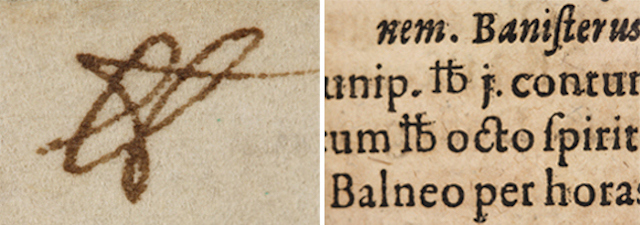 ℔
nem. Baniſterus
unip. ℔ j. contun
cum ℔ octo ſpirit
Balneo per horas